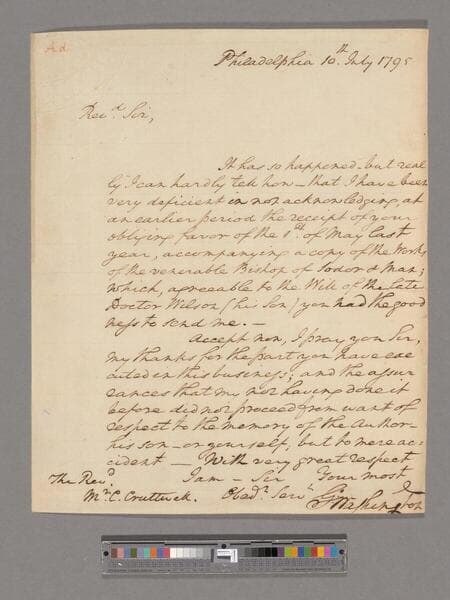 Ad.
Philadelphia 10.th July 1795
Rev.d Sir,
It has so happened – but real
ly I can hardly tell how – that I have been
very deficient in not acknowledging, at
an earlier period the receipt of your
obliging favor of the 1st. of May last
year, accompanying a copy of the Works
of the venerable Bishop of Sodor & Man;
which, agreeable to the Will of the late
Doctor Wilson (his Son) you had the good
ness to send me. –
Accept now, I pray you Sir,
my thanks for the part you have exe
cuted in this business; and the assur
ances that my not having done it
before did not proceed from want of
respect to the memory of the Author –
his son – or yourself; but to mere ac-
cident – With very great respect
I am – Sir Your most
Obed.t Serv.t
G Washington
The Rev.d
Mr. C. Cruttwell.